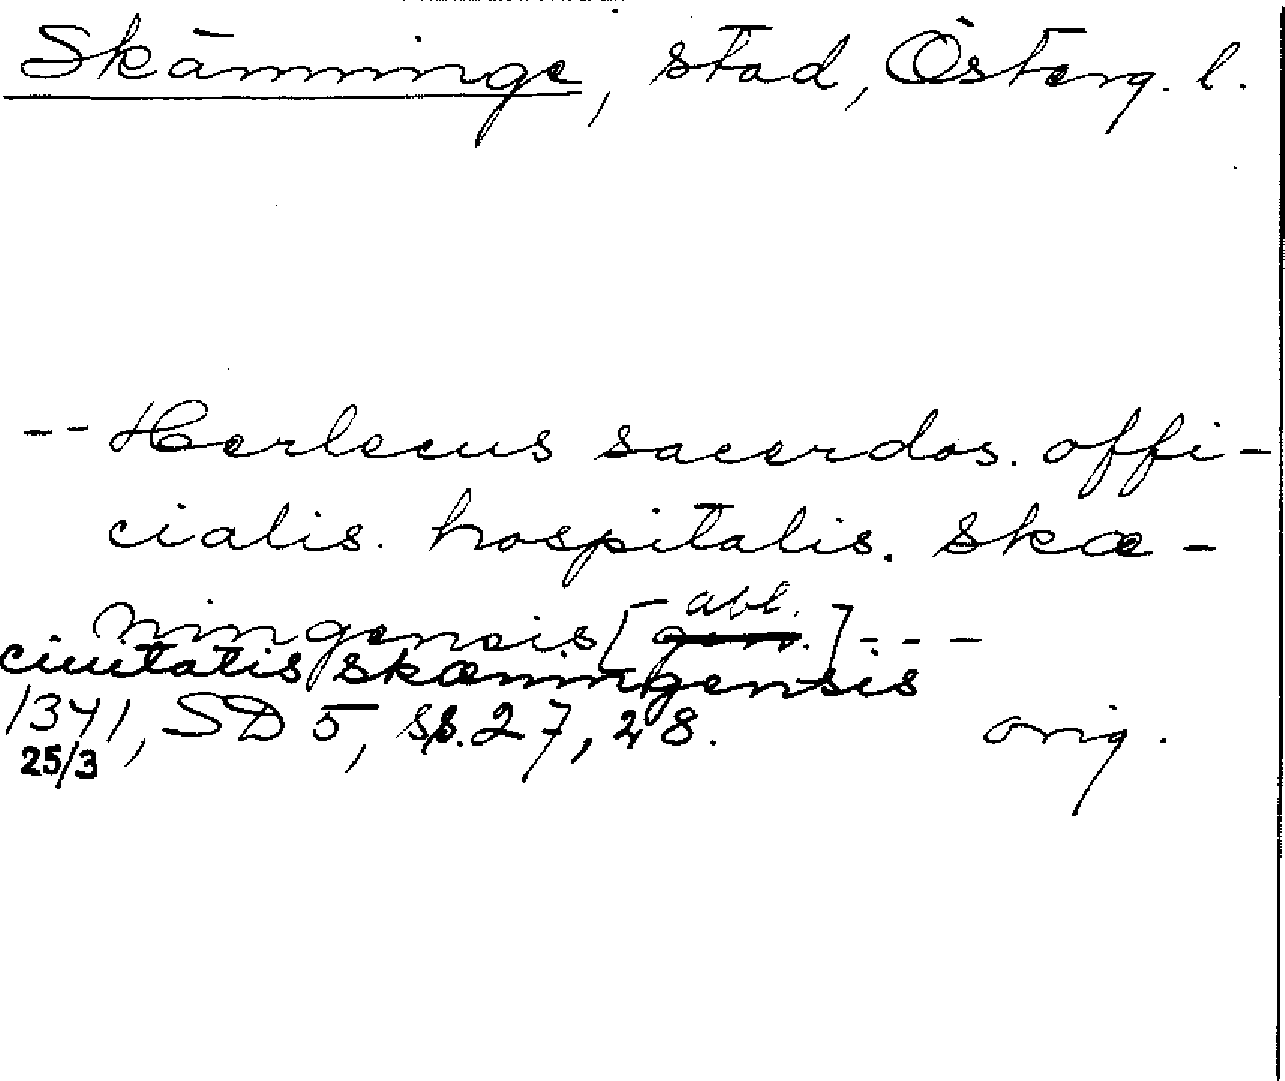 Skänninge, stad, Österg. l.
-- Herlecus sacerdos. offi-
cialis. hospitalis. Skæ-
ningensis [gen. abl.] ---
ciuitatis skæningensis
1341, SD 5, ss. 27, 28. orig.
25/3